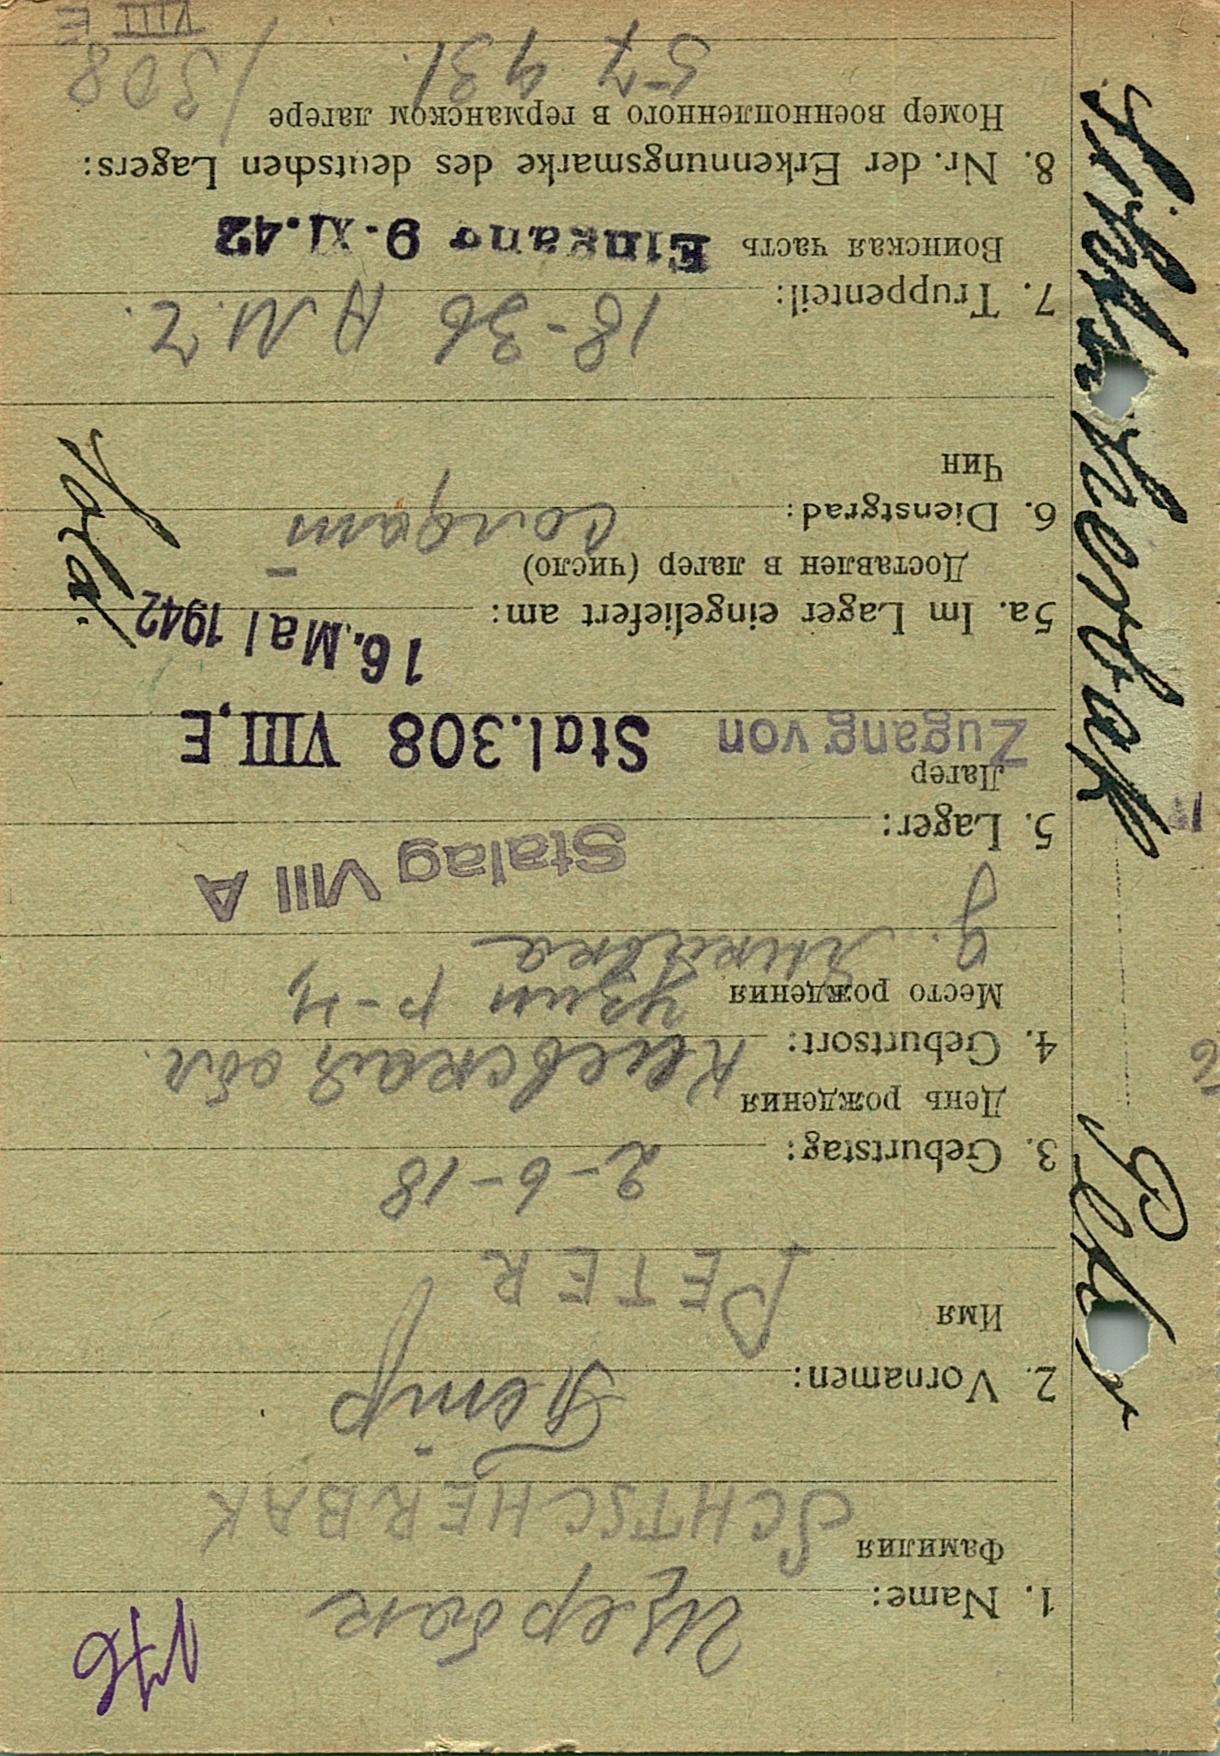 176
1. Name: Щербак
Фамилия
SCHTSCHERBAK
2. Vornamen: Петр
Имя
PETER
3. Geburtstag: 2-6-18
День рождения
4. Geburtsort: Киевская обл.
Место рождения
узин р-н
Stalag VIII A
5. Lager:
Лагер
Zugang von Stal.308 VIII,E
16. Mai 1942
5a. Im Lager eingeliefert am:
Доставлен в лагер (число)
6. Dienstgrad: солдат
Чин
7. Truppenteil: 18-36
Воинская часть Eingang 9. XI. 42
8. Nr. der Erkennungsmarke des deutschen Lagers:
Номер военнопленного в германском лагере
57 931. / 308
VIII E
Peter